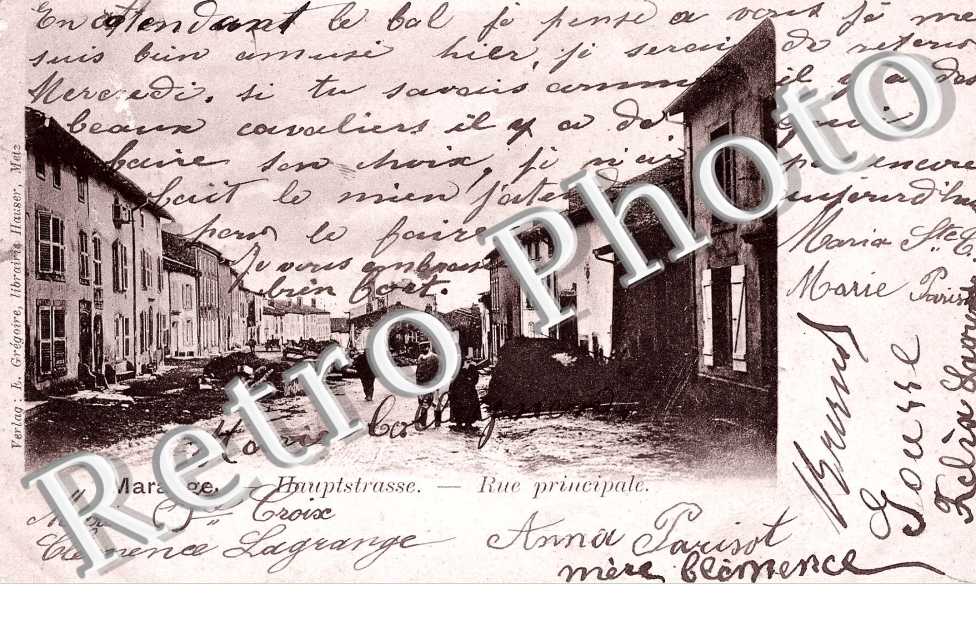 En attendant le bal je pense a vous je me
suis bien amusé hier, je serai de retour
Mercredi. si tu savais comme il y a de
beaux cavaliers il y a de quoi
faire son choix, je n'ai pas encore
fait le mien j'attends aujourd'hui
pour le faire
Je vous embrasse
bien fort.
Maria Ste C
Marie Parisot
Verlag: E. Grégoire, libraire Hauser, Metz
Retro Photo
Marange. — Hauptstrasse. — Rue principale.
Ste Croix
Clémence Lagrange
Anna Parisot
mère Clémence